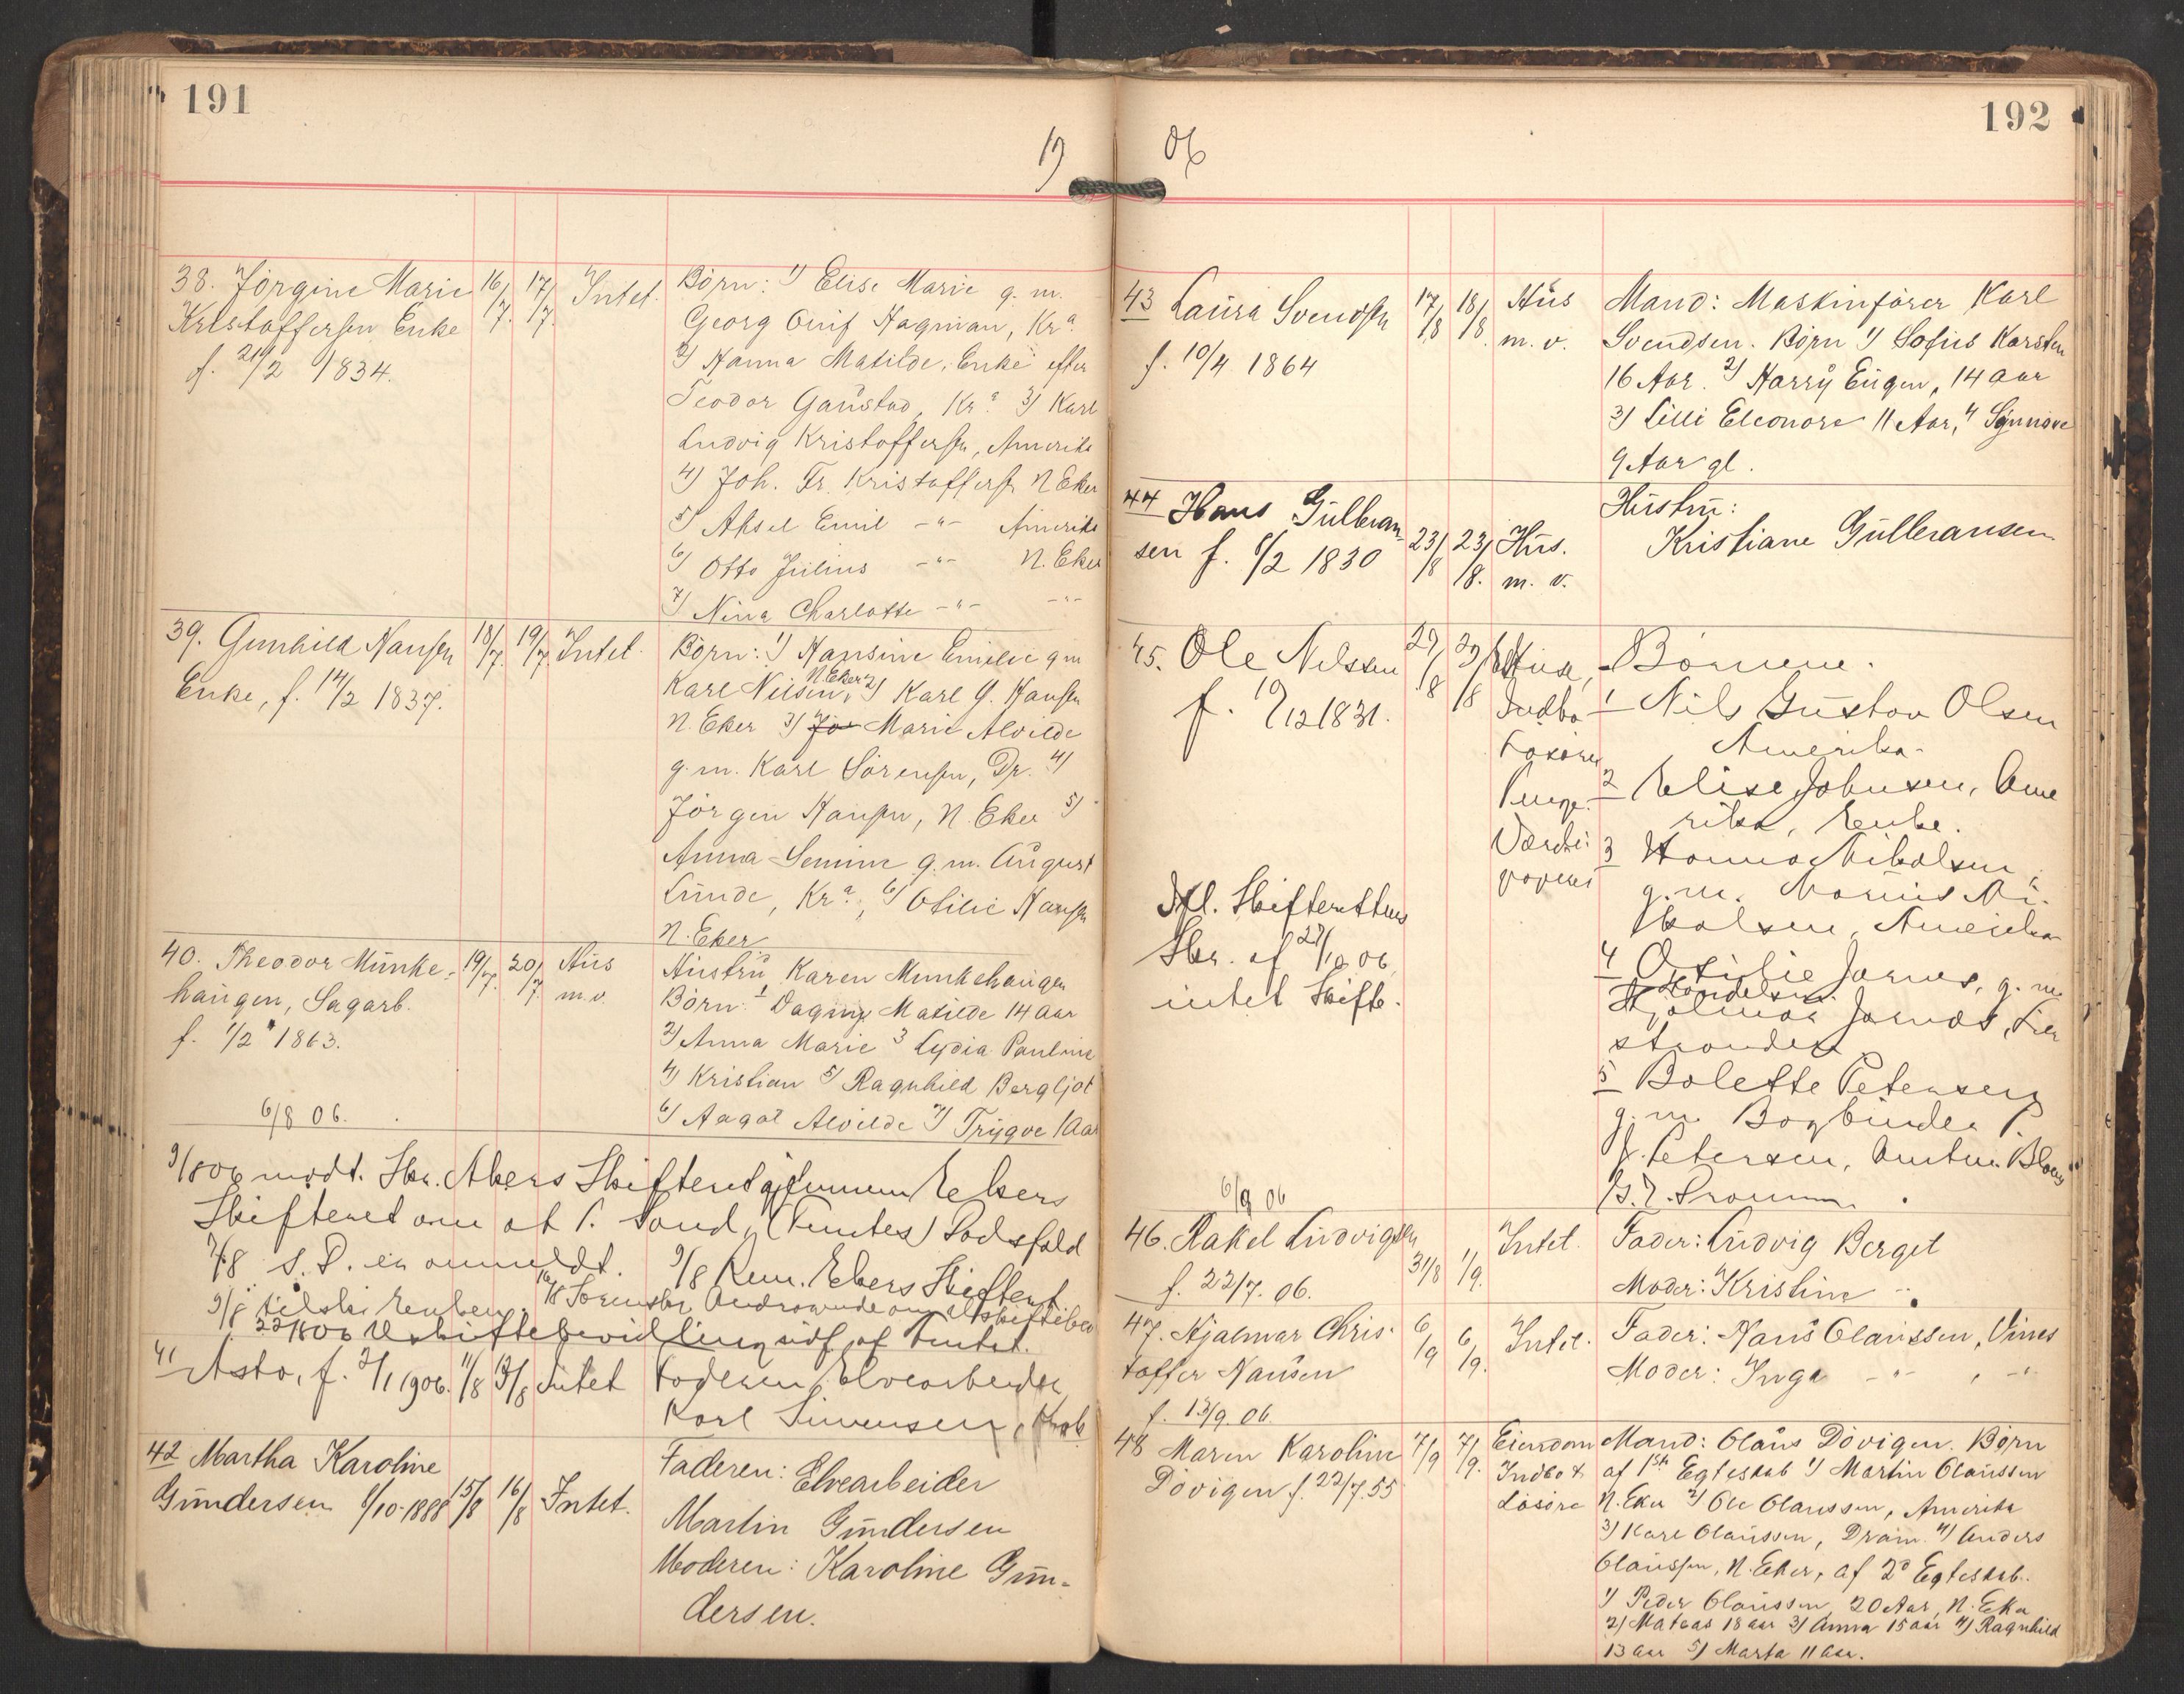 191
19
38. Jørgine Marie 16/7. 17/7. Intet. Børn: 1) Elise Marie g. m.
Kristoffersen Enke Georg Hagman, Kra.
f. 21/2 1834. 2) Hanna Matilde, Enke efter
Teodor Gaustad, Kra. 3) Karl
Ludvig Kristoffersen, Amerika
4) Joh. Fr. Kristoffersen N Eker
5) Aksel Emil -"- Amerika
6) Otto Julius -"- N. Eker
7) Nina Charlotte -"- -"-
39. Gunhild Hansen 18/7. 19/7. Intet. Børn: 1) Hansine Emilie g m
Enke, f. 14/2 1837. Karl Nilsen, N. Eker 2) Karl G. Hansen
N. Eker 3) Jø Marie Alvilde
g. m. Karl Sørensen, Dr. 4)
Jørgen Hansen, N. Eker 5)
Anna g. m. August
Lunde, Kra., 6) Otilie Hansen
N. Eker
40. Theodor Munke- 19/7. 20/7. Hus Hustru Karen Munkehaugen
haugen, Sagarb. m. v. Børn: 1 Dagny Matilde 14 Aar
f. 1/2 1863. 2) Anna Marie 3 Lydia Pauline
4) Kristian 5) Ragnhild Bergljot
6/8 06. 6) Aagot Alvilde 7) Trygve 1 Aar
9/8 06 modt. Skr. Akers Skifteret Ekers
Skifteret om at Dødsfald
7/8 S. D. er anmeldt. 9/8 Rem. Ekers Skifteret
9/8 tilskr. Enken. 16/8
22/8 06 Uskiftebevilling udf. af
41 Asta, f. 2/1 1906. 11/8 13/8 Intet Faderen Elvearbeider
Karl Simensen,
42 Martha Karoline Faderen: Elvearbeider
Gundersen 6/10-1888 15/8 16/8 Intet. Martin Gundersen
Moderen: Karoline Gun-
dersen.
192
06
43 Laura Svendsen 17/8 18/8. Hus Mand: Maskinfører Karl
f. 10/4 1864 m. v. Svendsen. Børn 1) Sofus Karsten
16 Aar. 2) Harry Eugen, 14 Aar
3) Lilli Eleonore 11 Aar, 4) Synnøve
9 Aar gl.
44 Hans Gulbran- 23/8 23/8. Hus. Hustru:
sen f. 6/2 1830 m. v. Kristiane Gulbransen
45. Ole Nilsen 29/8 29/8 Huse, Børnene.
f. 19/12 1831. Indbo 1 Nils Gustav Olsen
Løsøre Amerika.
Penge. 2 Elise Johnsen, Ame
rika, Enke.
Værdi 3 Hanna Nikolsen,
papirer g. m. Marius Ni-
kolsen, Amerika
Ifl. Skifterettens
Skr. af 27/10 06
intet Skifte.
4 Otilie Jarnes, g. m
Handelsm.
Hjalmar Jarnes, Lier
stranden
5 Bolette Petersen
g. m Bogbinder P.
J. Petersen,
6/9 06 Dramm
46. Rakel Ludvigsen 31/8 1/9. Intet. Fader: Ludvig Berget
f. 22/7. 06. Moder: Kristine -"-
47. Hjalmar Chris- 6/9 6/9. Intet. Fader: Hans Olaussen, Vines
toffer Hansen Moder: Inga -"- , -"-
f. 13/9. 06.
48 Maren Karoline 7/9 7/9. Eiendom Mand: Olaus Døvigen. Børn
Døvigen f. 22/7. 55 Indbo & af 1ste Egteskab 1) Martin Olaussen
Løsøre N. Eker 2) Ole Olaussen, Amerika
3) Karl Olaussen, Dram. 4) Anders
Olaussen, N. Eker, af 2d Egteskab.
1) Peder Olaussen, 20 Aar, N. Eker
2) Mateas 18 aar 3) Anna 15 aar 4) Ragnhild
13 aar 5) Marta 11 Aar.